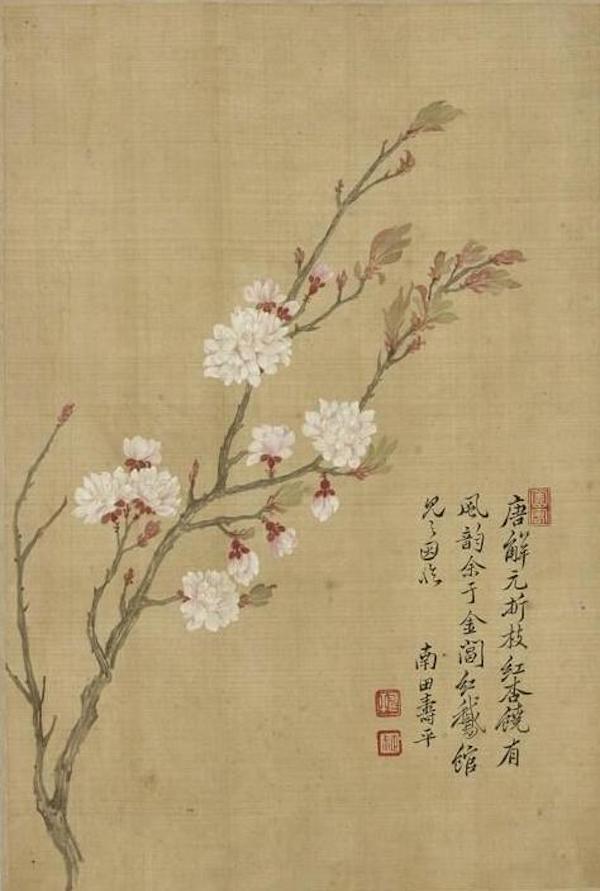 唐解元折枝红杏饒有
風韵余于金閶红鵞館
見之因临
南田壽平